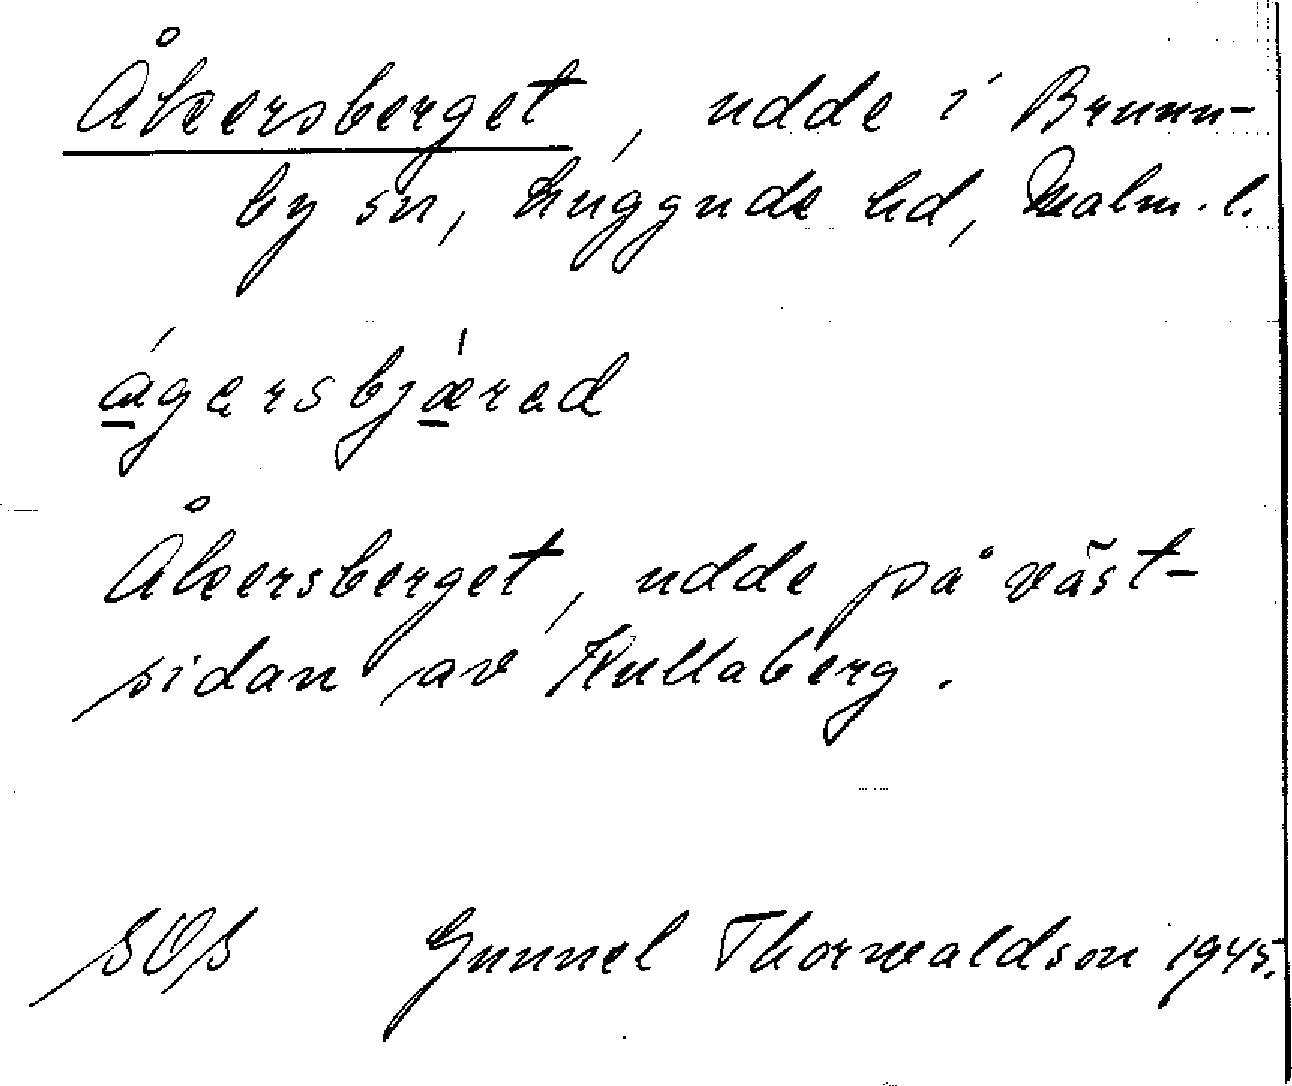 Åkersberget, udde i Brunn-
by sn, Luggude hd, Malm. l.
ágersbjǽrad
Åkersberget, udde på väst-
sidan av Kullaberg.
SOS Gunnel Thorwaldson 1945.